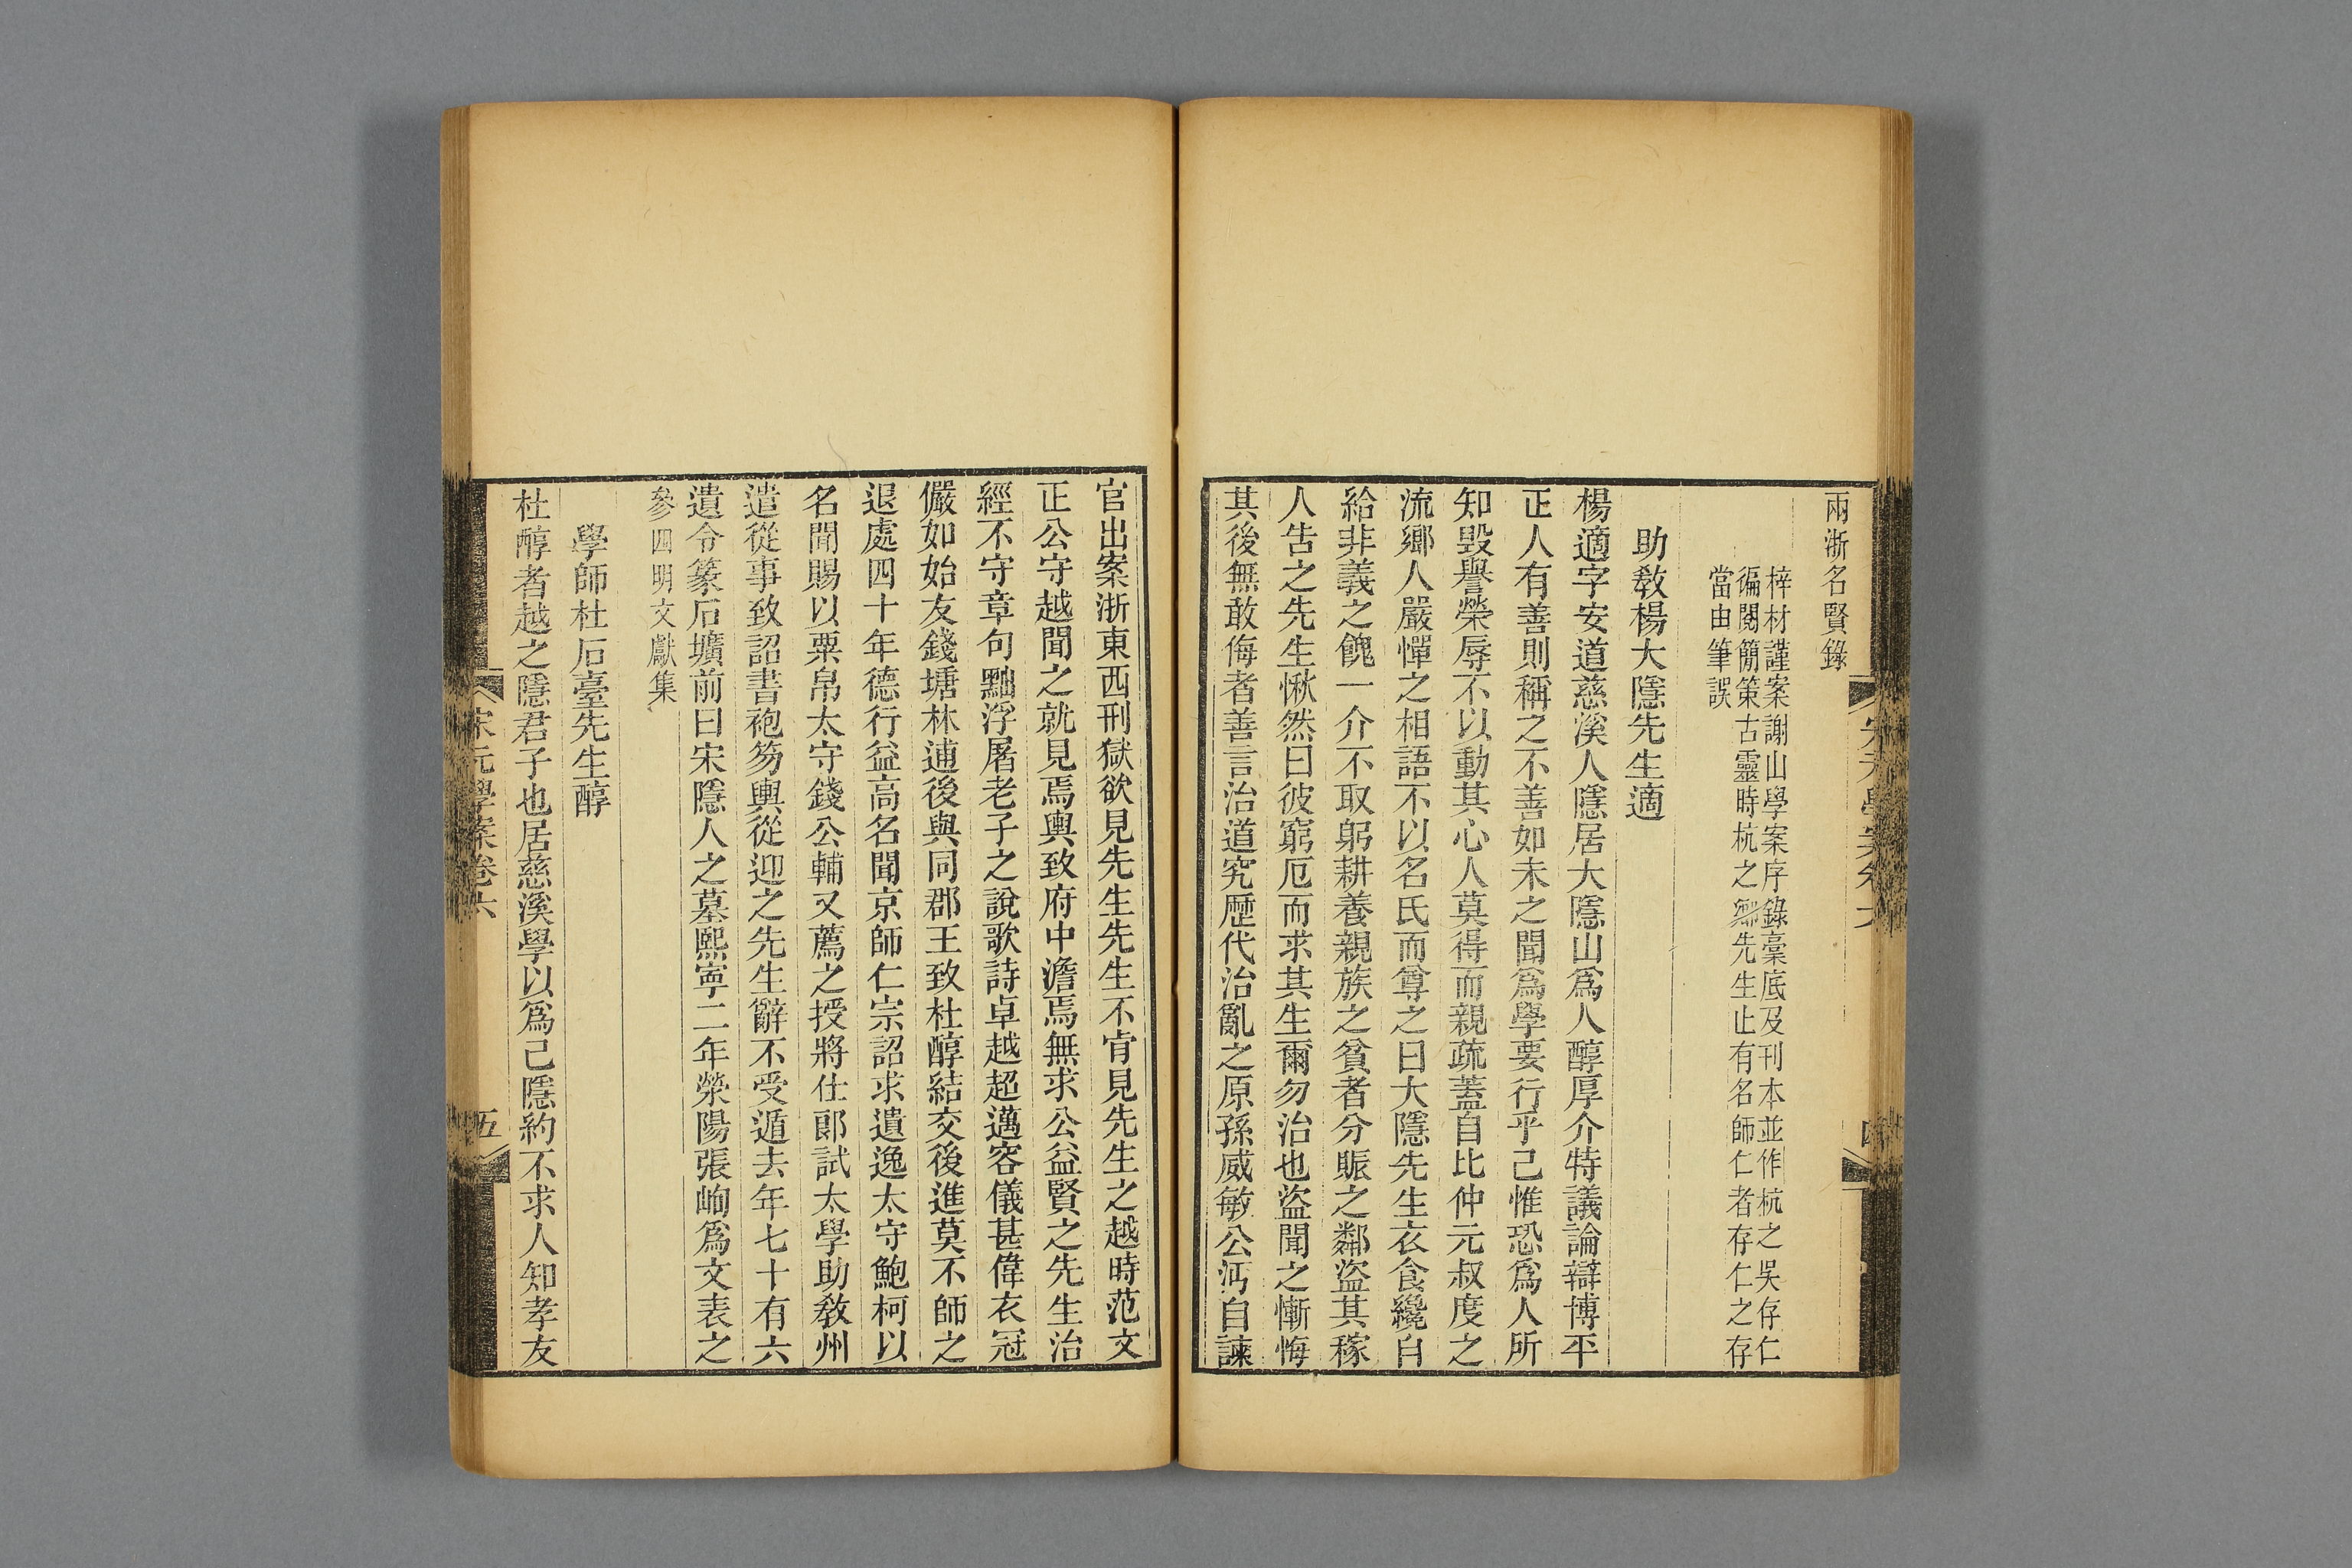 兩浙名賢錄
梓材謹案謝山學案序錄稾底及刊本並作杭之吳存仁
徧閱簡策古靈時杭之鄉先生止有名師仁者存仁之存
當由筆誤
助敎楊大隱先生適
楊適字安道慈溪人隱居大隱山爲人醇厚介特議論辯博平
正人有善則稱之不善如未之聞爲學要行乎己惟恐爲人所
知毀譽榮辱不以動其心人莫得而親疏蓋自比仲元叔度之
流鄉人嚴憚之相語不以名氏而尊之曰大隱先生衣食纔自
給非義之餽一介不取躬耕養親族之貧者分賑之鄰盜其稼
人告之先生愀然曰彼窮厄而求其生爾勿治也盜聞之慚悔
其後無敢侮者善言治道究歷代治亂之原孫威敏公沔自諫
宋元學案卷六
四
官出案浙東西刑獄欲見先生先生不肯見先生之越時范文
正公守越聞之就見焉輿致府中澹焉無求公益賢之先生治
經不守章句黜浮屠老子之說歌詩卓越超邁容儀甚偉衣冠
儼如始友錢塘林逋後與同郡王致杜醇結交後進莫不師之
退處四十年德行益高名聞京師仁宗詔求遺逸太守鮑柯以
名聞賜以粟帛太守錢公輔又薦之授將仕郞試太學助敎州
遣從事致詔書袍笏輿從迎之先生辭不受遁去年七十有六
遺令篆石壙前曰宋隱人之墓熙寧二年榮陽張峋爲文表之
參四明文獻集
學師杜石臺先生醇
杜醇者越之隱君子也居慈溪學以爲己隱約不求人知孝友
宋元學案卷六
五